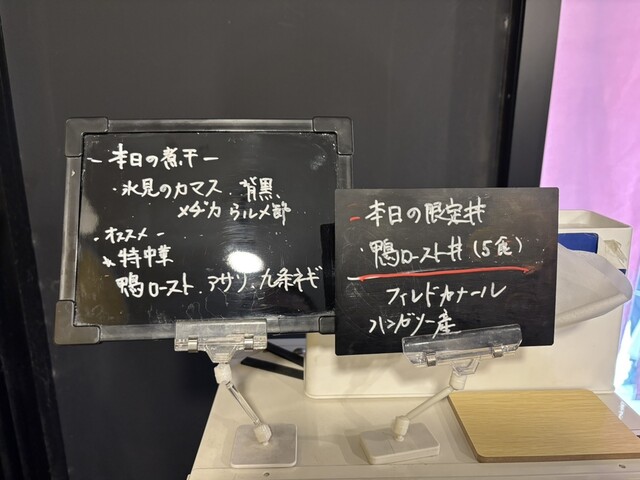 ー本日の煮干ー
・氷見のカマス、背黒、
メヂカ ウルメ節
・オススメー
特中華
鴨ロースト、アサリ、九条ネギ
ー本日の限定丼
・鴨ロースト丼（5食）
フィルドカナール
ハンガリー産